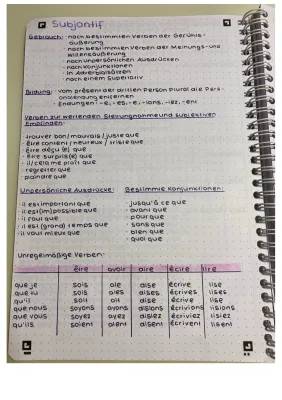 Subjontif
Gebrauch: · nach bestimmten Verben der Gefühls-
äußerung
· nach bestimmten Verben der Meinungs- und
Willensäußerung
· nach unpersönlichen Ausdrücken
· nach Konjunktionen
· in Adverbialsätzen
· nach einem Superlativ
Bildung: · vom présent der dritten Person Plural die Pers-
onalendung entfernen
· Endungen: -e, -es, -e, -ions, -iez, -ent
Verben zur wertenden Stellungnahme und subjektiven
Empfinden:
· trouver bon / mauvais / juste que
· être content / heureux / triste que
· être déçu (e) que
· être surpris(e) que
· il/cela me plaît que
· regretter que
· plaindre que
Unpersönliche Ausdrücke:
· il est important que
· il est (im)possible que
· il faut que
· il est (grand) temps que
· il vaut mieux que
Bestimmte Konjunktionen:
· jusqu'à ce que
· avant que
· pour que
· sans que
· bien que
· quoi que
Unregelmäßige Verben:
être avoir dire écrire lire
que je sois aie dise écrive lise
que tu sois aies dises écrives lises
qu'il soit ait dise écrive lise
que nous soyons ayons disions écrivions lisions
que vous soyez ayez disiez écriviez lisiez
qu'ils soient aient disent écrivent lisent